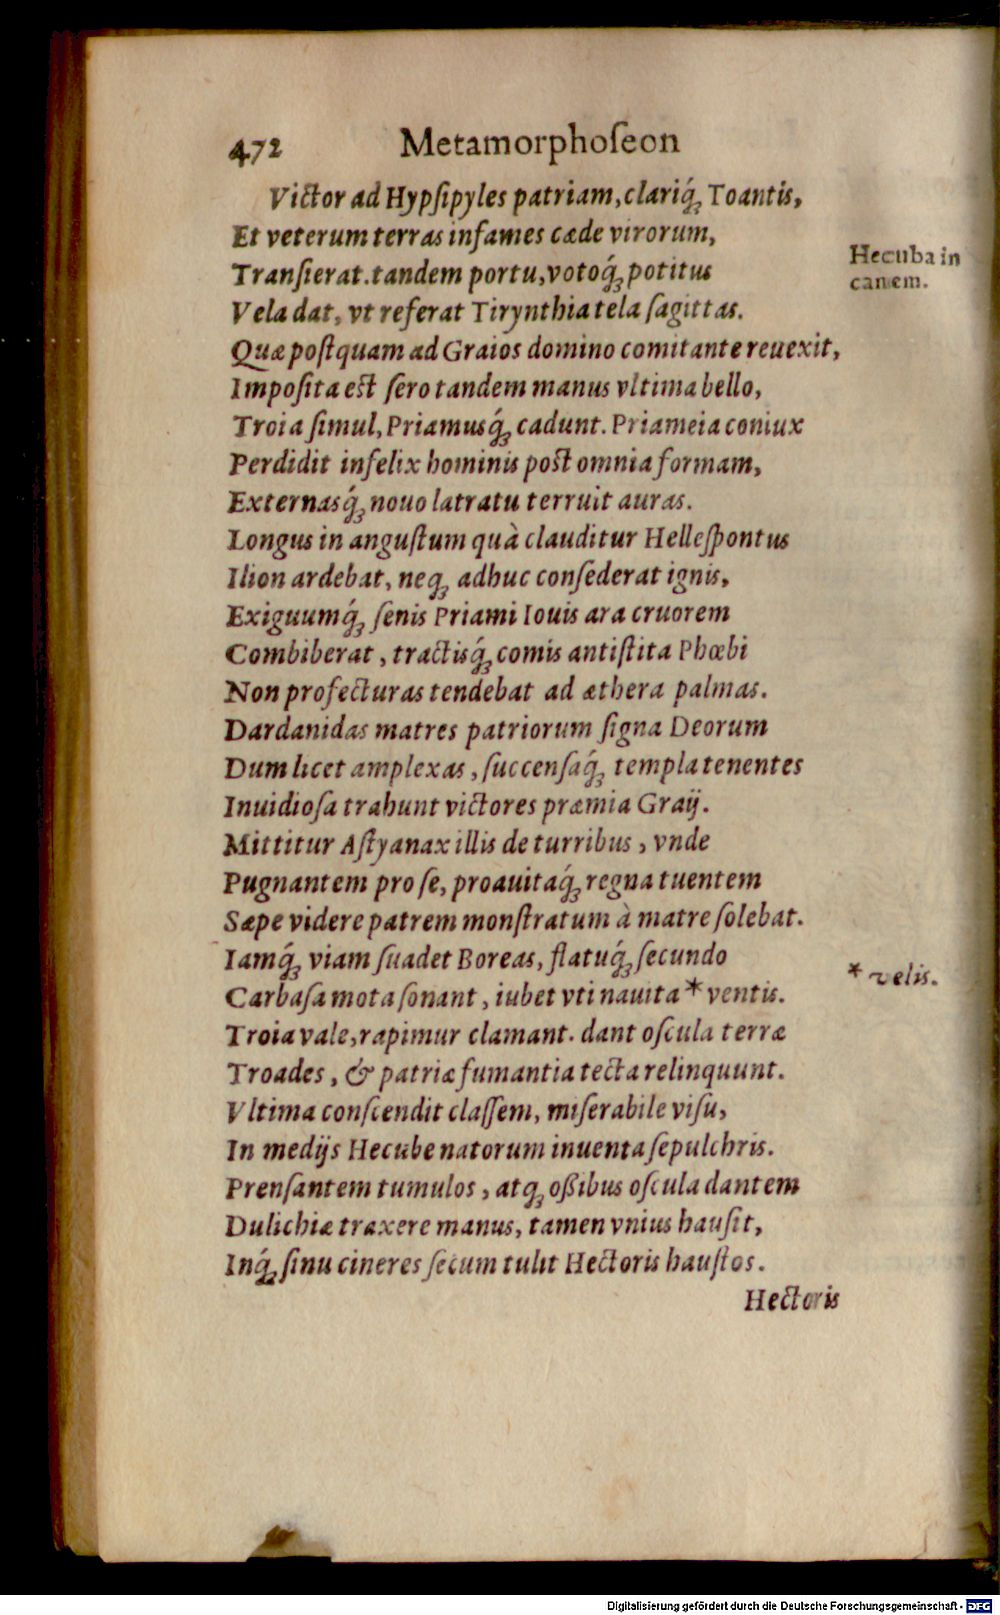 472 Metamorphoſeon
Victor ad Hypſipyles patriam, clariq́ꝫ Toantis,
Et veterum terras infames cæde virorum,
Tranſierat. tandem portu, votoq́ꝫ potitus
Vela dat, vt referat Tirynthia tela ſagittas.
Quæ poſtquam ad Graios domino comitante reuexit,
Impoſita eſt ſero tandem manus vltima bello,
Troia ſimul, Priamusq́ꝫ cadunt. Priameia coniux
Perdidit infelix hominis poſt omnia formam,
Externasq́ꝫ nouo latratu terruit auras.
Longus in anguſtum quà clauditur Helleſpontus
Ilion ardebat, neqꝫ adhuc conſederat ignis,
Exiguumq́ꝫ ſenis Priami Iouis ara cruorem
Combiberat, tractisq́ꝫ comis antiſtita Phœbi
Non profecturas tendebat ad æthera palmas.
Dardanidas matres patriorum ſigna Deorum
Dum licet amplexas, ſuccenſaq́ꝫ templa tenentes
Inuidioſa trahunt victores præmia Graij.
Mittitur Aſtyanax illis de turribus, vnde
Pugnantem pro ſe, proauitaq́ꝫ regna tuentem
Sæpe videre patrem monſtratum à matre ſolebat.
Iamq́ꝫ viam ſuadet Boreas, flatuq́ꝫ ſecundo
Carbaſa mota ſonant, iubet vti nauita * ventis.
Troia vale, rapimur clamant. dant oſcula terræ
Troades, & patriæ fumantia tecta relinquunt.
Vltima conſcendit claſſem, miſerabile viſu,
In medijs Hecube natorum inuenta ſepulchris.
Prenſantem tumulos, atqꝫ oßibus oſcula dantem
Dulichiæ traxere manus, tamen vnius hauſit,
Inq́ꝫ ſinu cineres ſecum tulit Hectoris hauſtos.
Hectoris
Hecuba in
canem.
* velis.
Digitalisierung gefördert durch die Deutsche Forschungsgemeinschaft - DFG